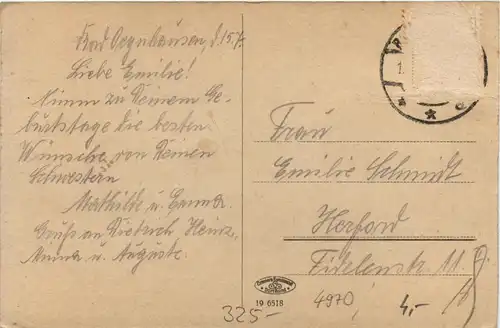 Bad Oeynhausen, d. 15.7.
Liebe Emilie!
Nimm zu Deinem Ge-
burtstage die besten
Wünsche von Deinen
Schwestern
Mathilde u. Emma.
Gruß an Dietrich, Heinz,
Minna u. Auguste.
Frau
Emilie Schmidt
Herford
Fidelenstr. 11
19 6518
325,-
4970
4,-